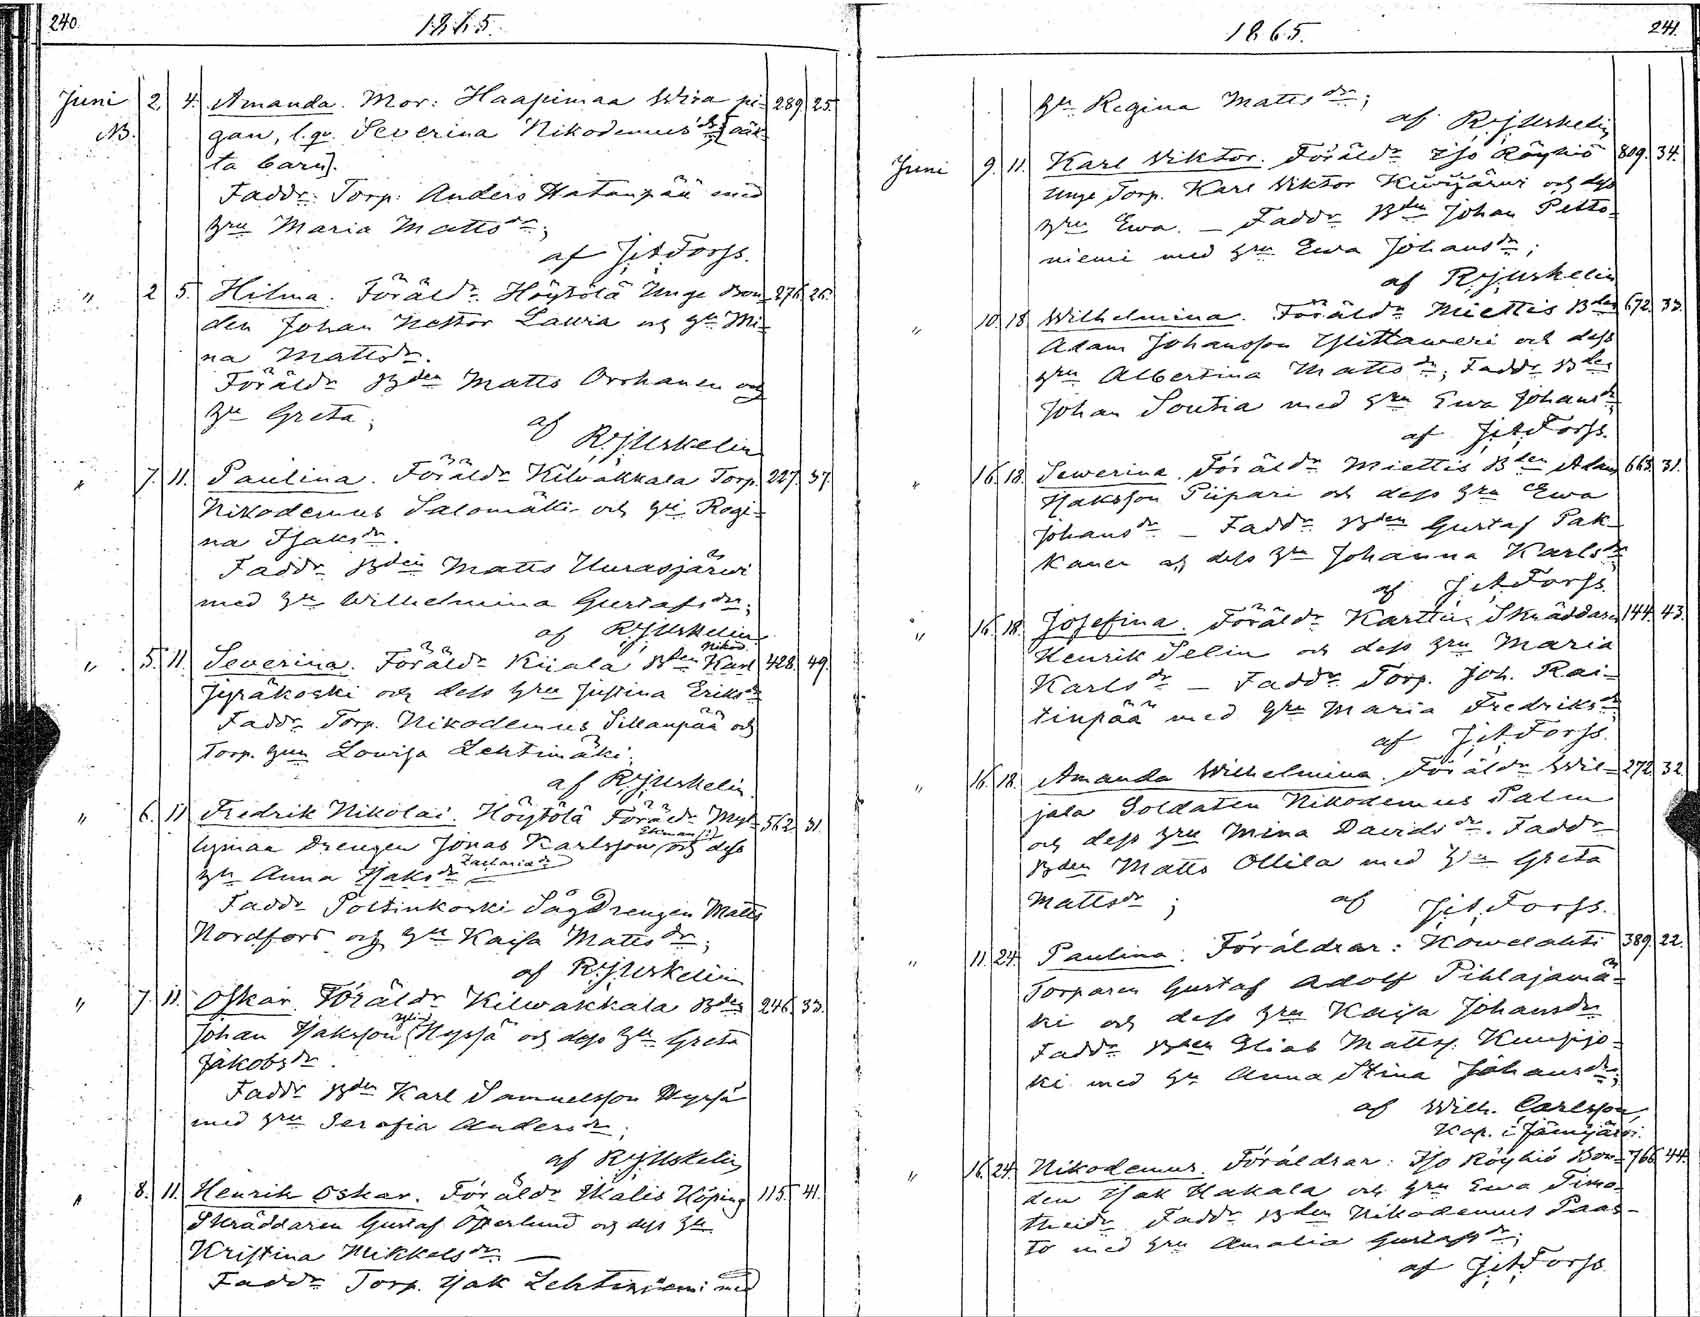 240.
1865.
Juni 2. 4. Amanda. Mor: Haapimaa Wira pi- 289. 25.
NB. gan, l. qv. Severina Nikodemusdr [oäk-
ta barn].
Faddr. Torp. Anders Hatanpää med
hru Maria Mattsdr;
af J.A.Forss.
" 2 5. Hilma. Föräldr. Höytölä Unge Bon- 276. 26.
den Johan Nestor Lauria och hu Mi-
na Mattsdr.
Föräldr Bden Matts Orrhanen och
hu Greta;
af
R.J.Urkelin
" 7. 11. Paulina. Föräldr Kilvakkala Torp. 227. 37.
Nikodemus Salomäki och hu Regi-
na Isaksdr.
Faddr Bden Matts Uurasjärvi
med hu Wilhelmina Gustafsdr;
af R.J.Urkelin
Nikod.
" 5. 11. Severina. Föräldr Kiiala Bden Karl 428. 49.
Jyräkoski och dess hru Justina Eriksdr
Faddr Torp. Nikodemus Sillanpää och
torp. hun Lovisa Lehtimäki.
af R.J.Urkelin.
" 6. 11 Fredrik Nikolai. Höytölä Föräldr Myl- 562. 31.
lymaa Drengen Jonas Karlsson (Ekman) och dess
hu Anna Isaksdr Zachariadr
Faddr Poltinkoski SågDrengen Matts
Nordfors och hu Kaisa Mattsdr;
af R.J.Urkelin
" 7. 11. Oskar. Föräldr Kilwakkala Bden 246. 33.
Johan Isaksson (Yli) Nyssä och dess hu Greta
Jakobsdr.
Faddr Bden Karl Samuelsson Nyssä
med hru Serafia Andersdr;
af R.J.Urkelin
" 8. 11. Henrik Oskar. Föräldr Ikalis Köping 115. 41.
Skräddaren Gustaf Österlund och dess hu
Kristina Mikkelsdr —
Faddr Torp. Isak Lehtiniemi med
241.
1865.
hu Regina Mattsdr;
af R.J.Urkelin
Juni 9. 11. Karl Viktor. Föräldr Iso Röyhiö 809. 34.
Unge Torp. Karl Viktor Kiwijärwi och dess
hru Ewa. — Faddr Bden Johan Petto-
niemi med hru Ewa Johansdr;
af R.J.Urkelin
" 10. 18 Wilhelmina. Föräldr Miettis Bden 672. 33.
Adam Johansson Ylittaweri och dess
hru Albertina Mattsdr; Faddr Bden
Johan Soutia med hru Ewa Johansdr;
af J.A.Forss.
" 16. 18. Sewerina. Föräldr Miettis Bden Adam 663. 31.
Isaksson Piipari och dess hru Ewa
Johansdr — Faddr Bden Gustaf Pak-
kanen och dess hru Johanna Karlsdr
af J.A.Forss.
" 16. 18. Josefina. Föräldr Karttu Skräddaren 144. 43.
Henrik Selin och dess hru Maria
Karlsdr — Faddr Torp. Joh. Rai-
tinpää med hru Maria Fredriksdr;
af J.A.Forss.
" 16. 18. Amanda Wilhelmina. Föräldr Wil- 272. 32.
jala Soldaten Nikodemus Palm
och dess hru Mina Davidsdr. Faddr
Bden Matts Ollila med hru Greta
Mattsdr; af J.A.Forss.
" 11. 24. Paulina. Föräldrar: Kowelahti 389. 22.
Torparen Gustaf Adolf Pihlajamä-
ki och dess hru Kaisa Johansdr
Faddr Bden Elias Mattss. Kuusjo-
ki med hu Anna Stina Johansdr;
af Wilh. Carlsson,
Kap. i Jämijärvi.
" 16. 24. Nikodemus. Föräldrar: Iso Röyhiö Bon- 766. 44.
den Isak Hakala och hru Ewa Timo-
theidr. Faddr Bden Nikodemus Paas-
to med hru Amalia Gustafsdr;
af J.A.Forss.